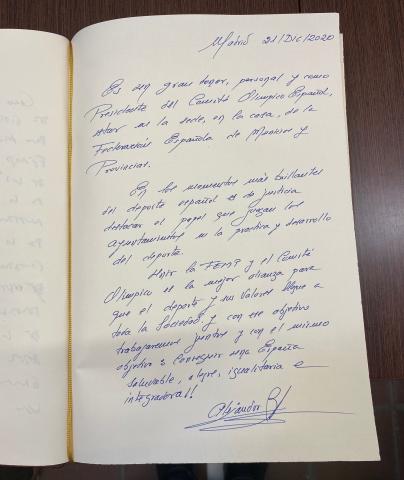 Madrid 21/Dic/2020
Es un gran honor, personal y como
Presidente del Comité Olímpico Español,
estar en la sede, en la casa, de la
Federación Española de Municios y
Provincias.
En los momentos más brillantes
del deporte español es de justicia
destacar el papel que juegan los
ayuntamientos en la practica y desarrollo
del deporte.
Unir la FEMP y el Comité
Olímpico es la mejor alianza para
que el deporte y sus valores llegue a
toda la Sociedad, y con ese objetivo
trabajaremos juntos y con el mismo
objetivo: Conseguir una España
saludable, alegre, igualitaria e
integradora!
Alejandro